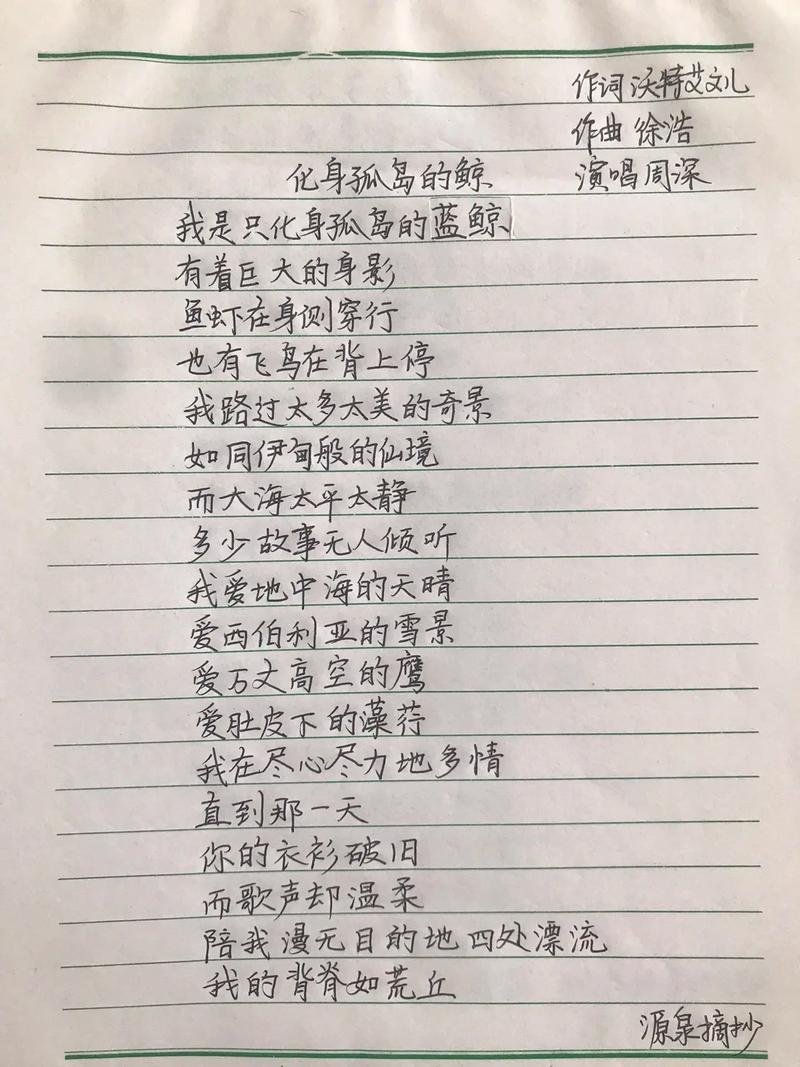 作词 沃特艾文儿
作曲 徐浩
化身孤岛的鲸 演唱周深
我是只化身孤岛的蓝鲸
有着巨大的身影
鱼虾在身侧穿行
也有飞鸟在背上停
我路过太多太美的奇景
如同伊甸般的仙境
而大海太平太静
多少故事无人倾听
我爱地中海的天晴
爱西伯利亚的雪景
爱万丈高空的鹰
爱肚皮下的藻荇
我在尽心尽力地多情
直到那一天
你的衣衫破旧
而歌声却温柔
陪我漫无目的地四处漂流
我的背脊如荒丘
源泉摘抄